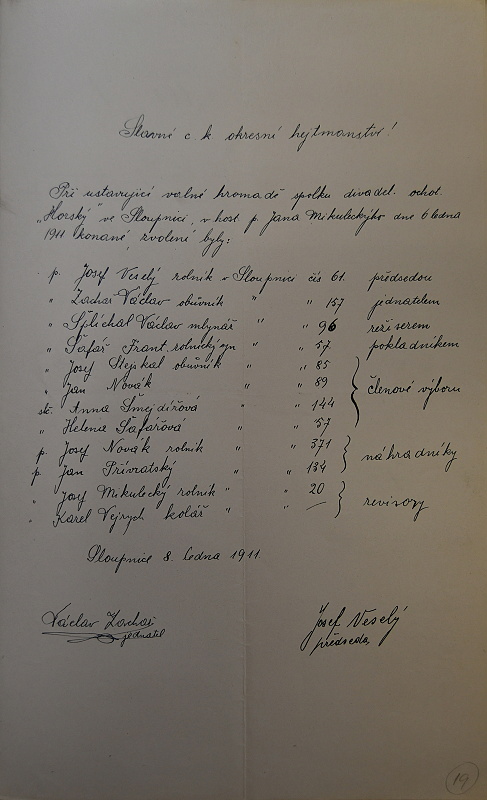 Slavné c. k. okresní hejtmanství!
Při ustavující valné hromadě spolku divadel. ochot.
„Horský" ve Sloupnici, v host. p. Jana Mikuleckýho dne 6 ledna
1911 konané, zvoleni byly:
p. Josef Veselý rolník v Sloupnici čís 61. předsedou
„ Zachař Václav obuvník „ „ 157 jednatelem
„ Šplíchal Václav mlynář „ „ 96 režiserem
„ Šafář Frant. rolnický syn „ „ 57. pokladníkem
„ Josef Stejskal obuvník „ „ 85
„ Jan Novák „ „ 89 členové výboru
sl. Anna Šmejdířová „ „ 144
„ Helena Šafářová „ „ 57
p. Josef Novák rolník „ „ 371 náhradníky
p. Jan Přívratský „ „ 134
„ Josef Mikulecký rolník „ „ 20 revisory
„ Karel Vejrych kolář „ „ —
Sloupnice 8. ledna 1911.
Václav Zachař Josef Veselý
jednatel předseda
19